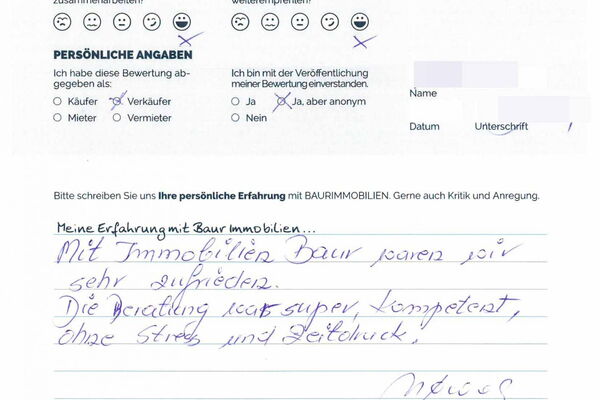 zusammenarbeiten?
weiterempfehlen?
PERSÖNLICHE ANGABEN
Ich habe diese Bewertung ab-
gegeben als:
Käufer Verkäufer
Mieter Vermieter
Ich bin mit der Veröffentlichung
meiner Bewertung einverstanden.
Ja Ja, aber anonym
Nein
Name
Datum Unterschrift
Bitte schreiben Sie uns Ihre persönliche Erfahrung mit BAURIMMOBILIEN. Gerne auch Kritik und Anregung.
Meine Erfahrung mit Baur Immobilien...
Mit Immobilien Baur waren wir
sehr zufrieden.
Die Beratung war super, kompetent,
ohne Stress und Zeitdruck.